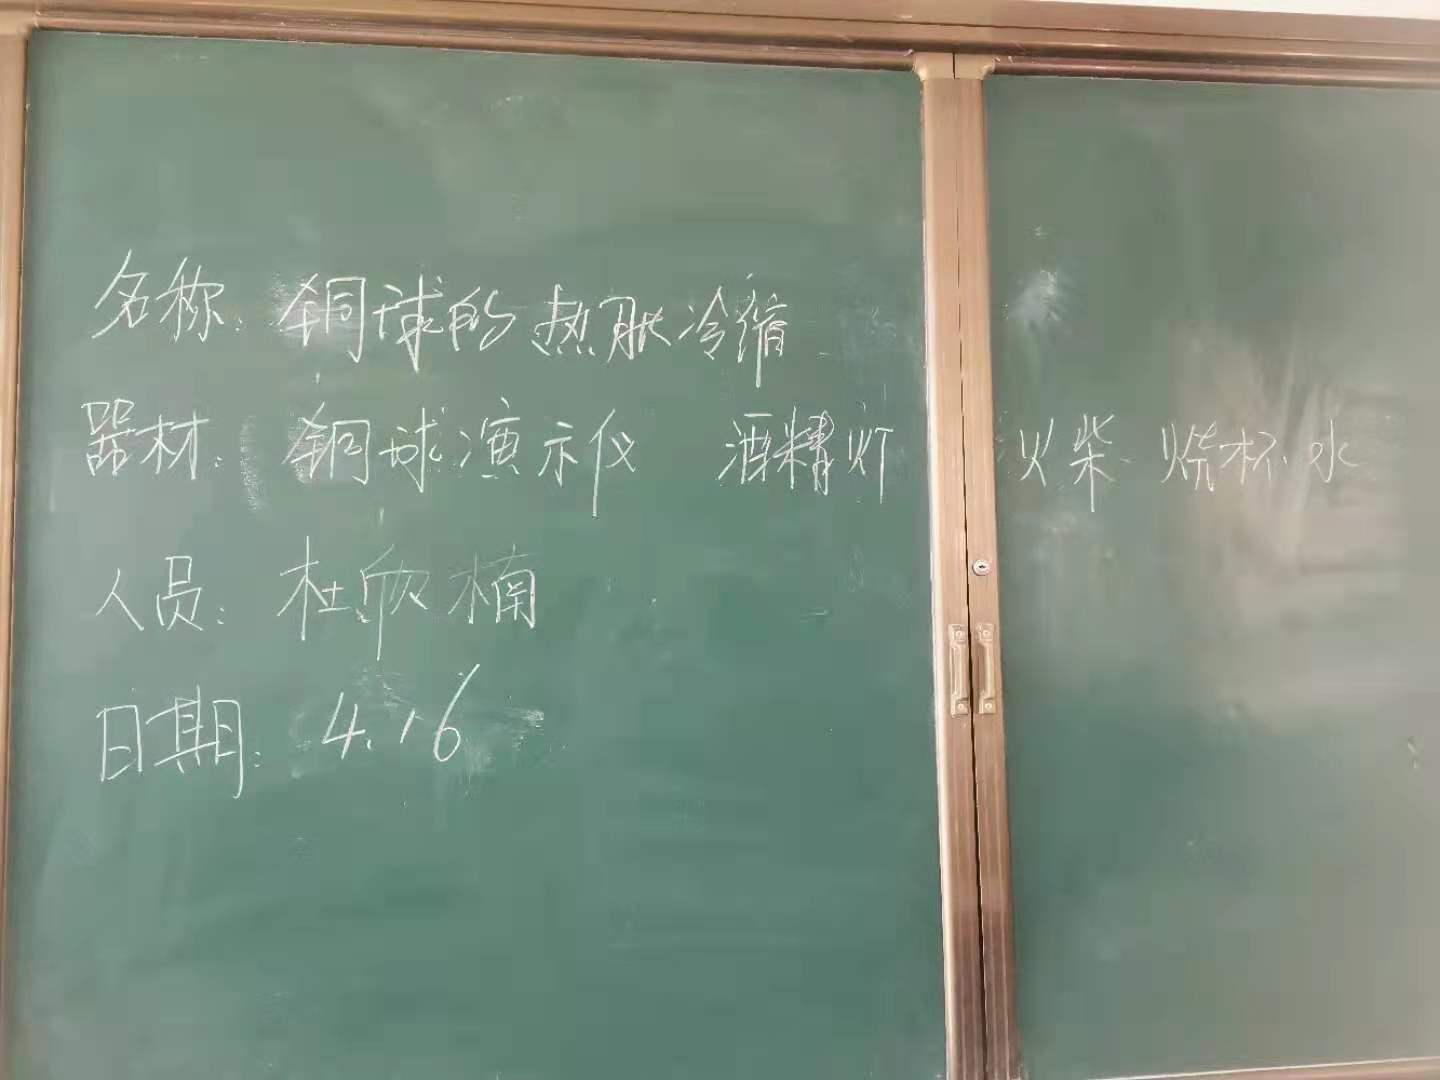 名称：铜球的热胀冷缩
器材：铜球演示仪 酒精灯 火柴 烧杯 水
人员：杜欣楠
日期：4.16